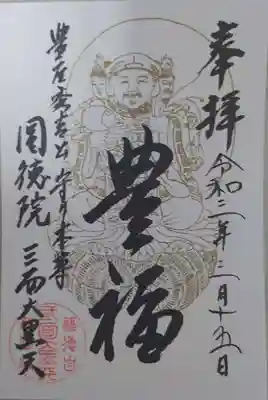 奉拝
令和三年三月十五日
豊福
豊臣秀吉公守り本尊
圓徳院 三面大黒天